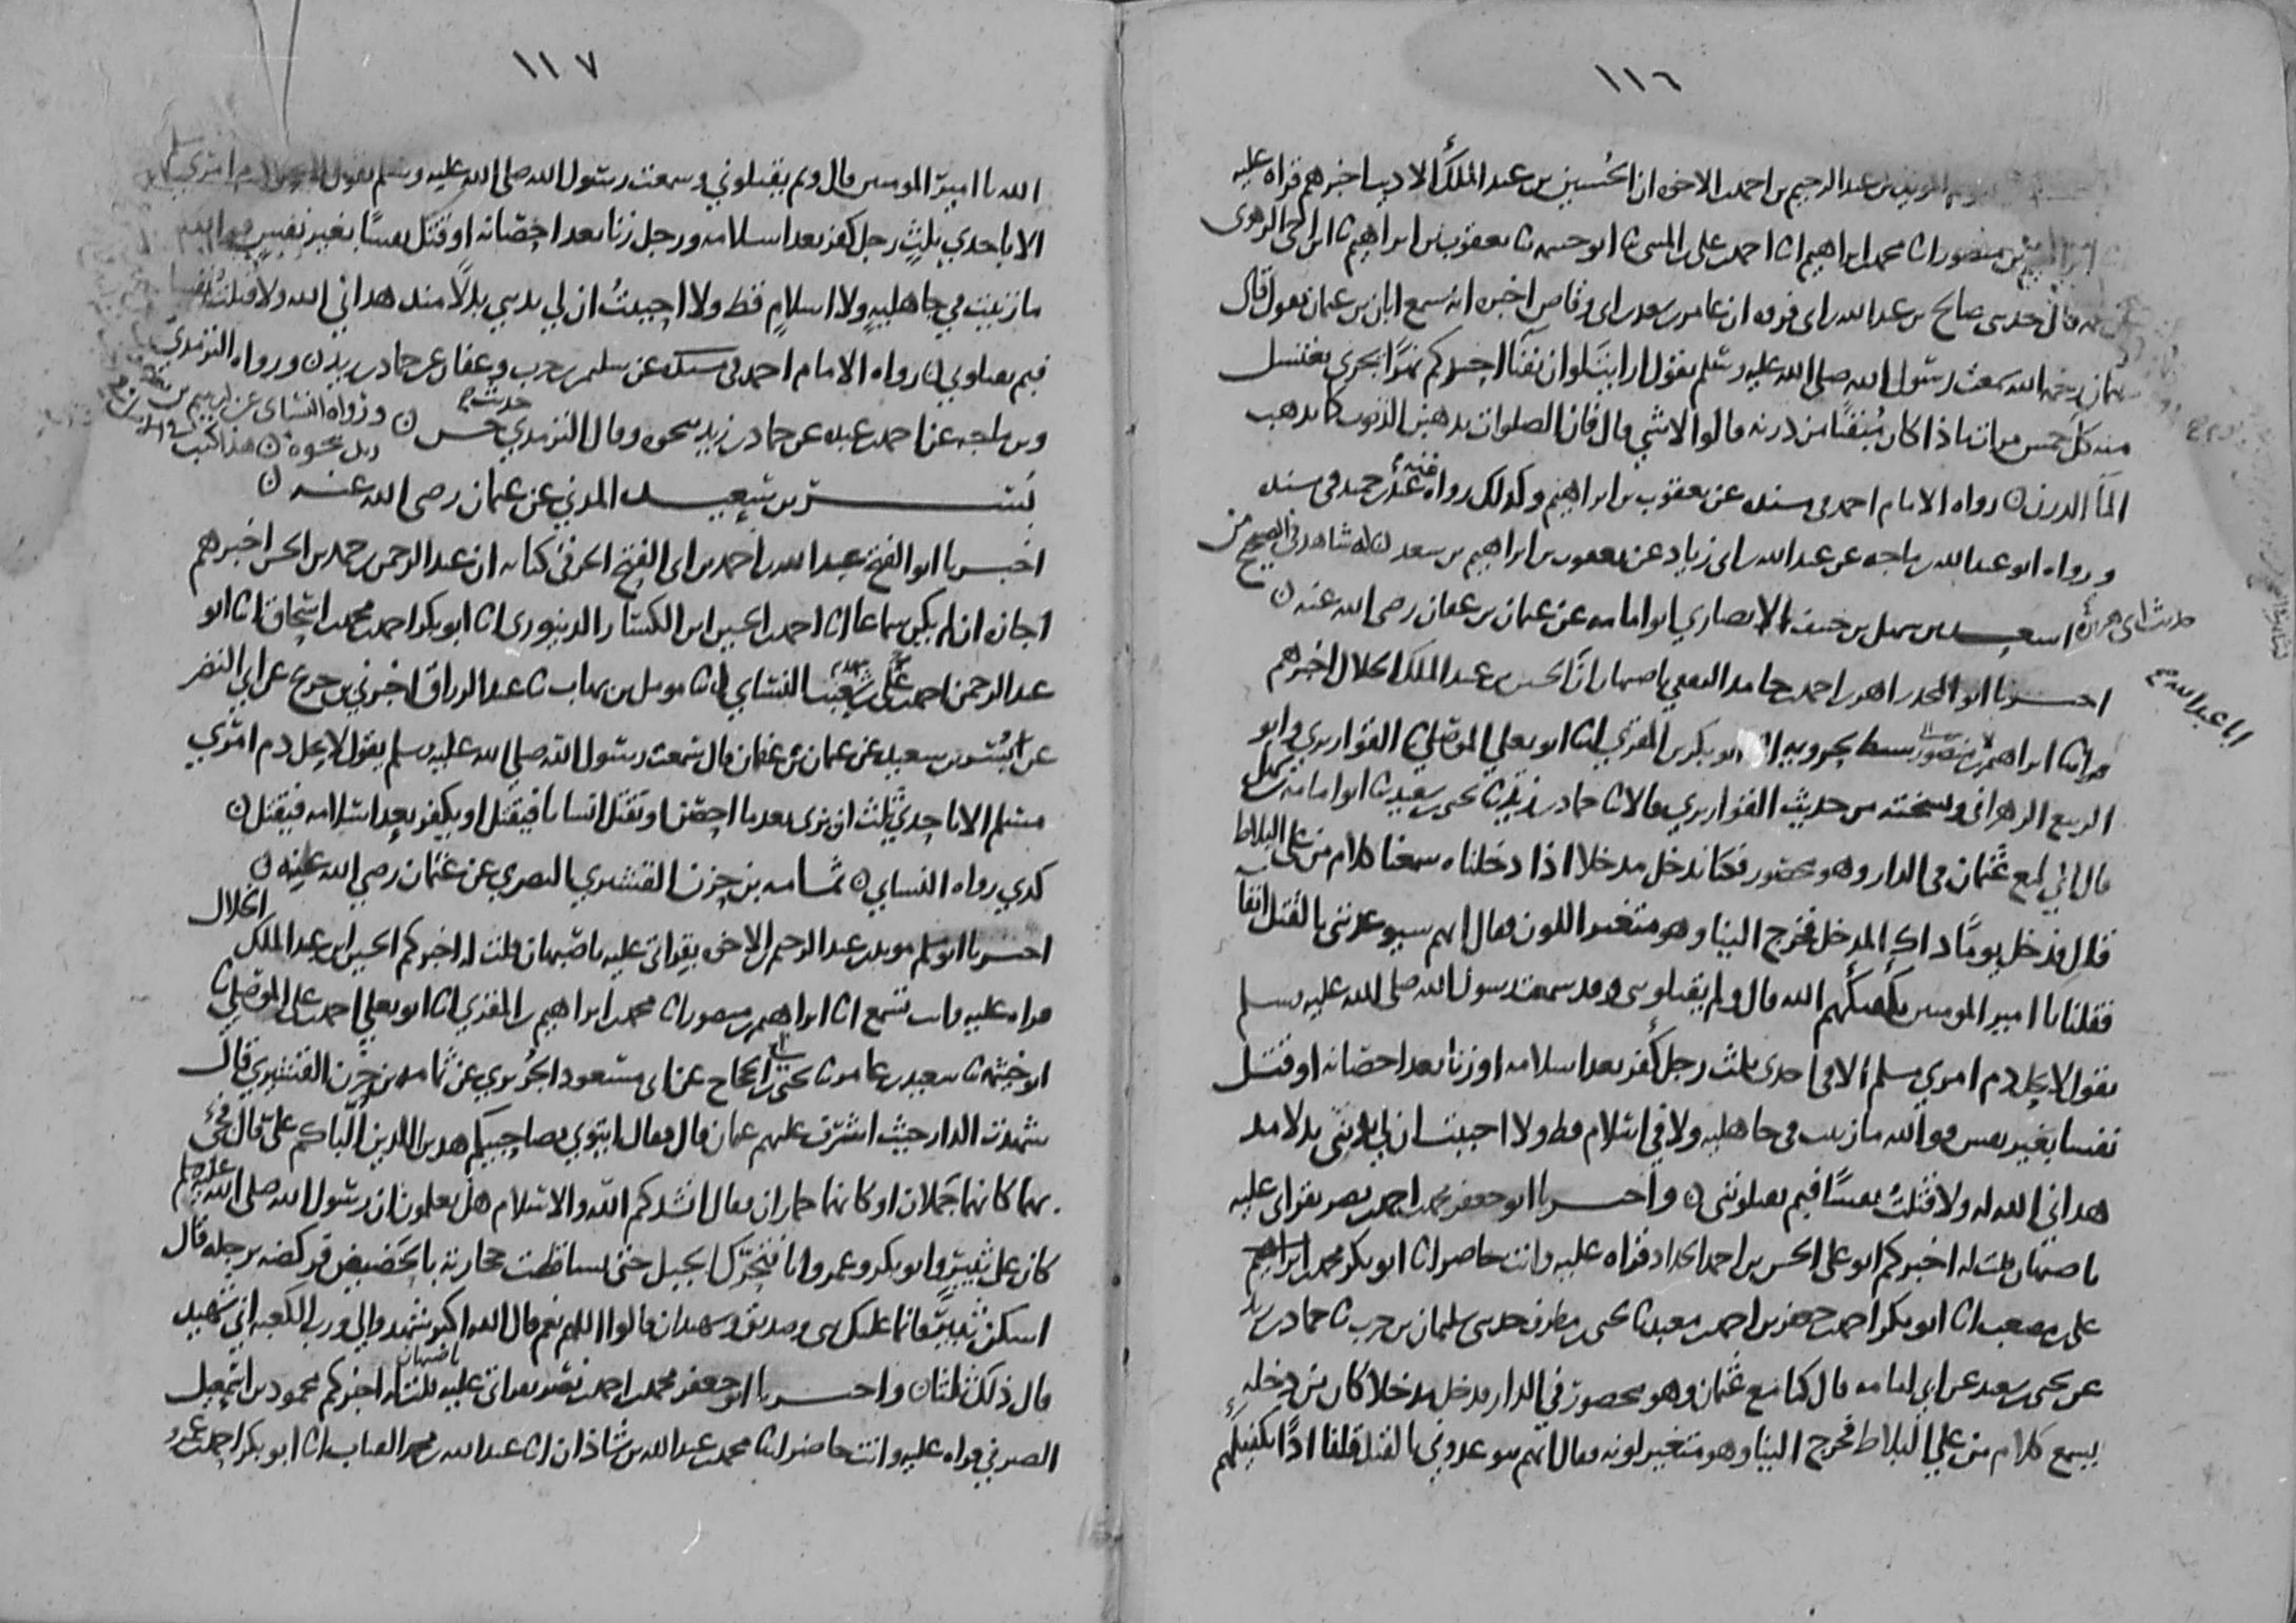 ١١٦
المويد بن عبد الرحيم بن احمد الاخوه ان الحسين بن عبد الملك الاديب اخبرهم قراه عليه
ابراهيم بن منصور انا محمد بن ابراهيم انا احمد بن علي بن المثنى نا ابو خيثمه نا يعقوب بن ابراهيم نا ابن اخي الزهري
عن عمه قال حدثني صالح بن عبد الله بن ابي فروه ان عامر بن سعد بن ابي وقاص اخبره انه سمع ابان بن عثمان يقول قال
عثمان رحمه الله سمعت رسول الله صلى الله عليه وسلم يقول ارايت لو ان بفنا احدكم نهرا يجري يغتسل
منه كل خمس مرات ماذا كان مبقيا من درنه قالوا لا شي قال فان الصلوات يذهبن الذنوب كما يذهب
الما الدرن ٥ رواه الامام احمد في مسنده عن يعقوب بن ابراهيم وكذلك رواه عنه عبد بن حميد في مسنده
ورواه ابو عبد الله بن ماجه عن عبد الله بن ابي زياد عن يعقوب بن ابراهيم بن سعد له شاهد في الصحيح من
حديث ابي هريرة
اسعد بن سهل بن حنيف الانصاري ابو امامه عن عثمان بن عفان رضي الله عنه ٥
اخبرنا ابو المجد زاهر بن احمد بن حامد الثقفي باصبهان ان الحسين بن عبد الملك الخلال اخبرهم
ابا عبد الله
قراه انا ابراهيم بن منصور سبط بحرويه انا ابو بكر بن المقري انا ابو يعلي الموصلي نا القواريري وابو
الربيع الزهراني ونسخته من حديث القواريري قالا نا حماد بن زيد نا يحيى بن سعيد نا ابو امامه بن سهل
قال اني لمع عثمان في الدار وهو محصور فكنا ندخل مدخلا اذا دخلناه سمعنا كلام من على البلاط
قال فدخل يوما ذاك المدخل فخرج الينا وهو متغير اللون فقال انهم سيوعدوني بالقتل انفا
فقلنا يا امير المومنين يكفيكهم الله قال ولم يقتلوني وقد سمعت رسول الله صلى الله عليه وسلم
يقول لا يحل دم امري مسلم الا في احدى ثلث رجل كفر بعد اسلامه او زنا بعد احصانه او قتل
نفسا بغير نفس فوالله ما زنيت في جاهليه ولا في اسلام قط ولا احببت ان لي بديني بدلا مذ
هداني الله له ولا قتلت نفسا فبم يقتلوني ٥ واخبرنا ابو جعفر محمد بن احمد بن نصر بقراتي عليه
باصبهان قلت له اخبركم ابو علي الحسن بن احمد الحداد قراه عليه وانت حاضر انا ابو بكر محمد بن ابراهيم
علي بن مصعب انا ابو بكر احمد بن جعفر بن احمد بن معبد نا يحيى بن مطرف حدثني سليمان بن حرب نا حماد بن زيد
عن يحيى بن سعيد عن ابي امامه قال كنا مع عثمان وهو محصور في الدار فدخل مدخلا كان من دخله
يسمع كلام من علي البلاط فخرج الينا وهو متغير لونه فقال انهم يتوعدوني بالقتل قلنا اذا يكفيكهم
١١٧
الله يا امير المومنين قال ولم يقتلوني وسمعت رسول الله صلى الله عليه وسلم يقول لا يحل دم امري مسلم
الا باحدي ثلث رجل كفر بعد اسلامه ورجل زنا بعد احصانه او قتل نفسا بغير نفس فوالله
ما زنيت في جاهليه ولا اسلام قط ولا احببت ان لي بديني بدلا منذ هداني الله ولا قتلت نفسا
فبم يقتلوني ٥ رواه الامام احمد في مسنده عن سليمن بن حرب وعفان عن حماد بن زيد ٥ ورواه الترمذي
وبن ماجه عن احمد بن عبده عن حماد بن زيد بنحوه وقال الترمذي حديث حسن ٥ ورواه النسائي عن ابراهيم بن يعقوب
بسر بن سعيد المدني عن عثمان رضي الله عنه ٥
اخبرنا ابو الفتح عبيد الله بن احمد بن ابي الفتح الخرقي في كتابه ان عبد الرحمن بن حمد بن الحسن اخبرهم
اجازه ان لم يكن سماعا انا احمد بن الحسين ابن الكسار الدينوري انا ابو بكر احمد بن محمد بن اسحاق انا ابو
عبد الرحمن احمد بن علي بن شعيب النسائي انا مومل بن يهاب نا عبد الرزاق اخبرني بن جريج عن ابي النضر
عن بسر بن سعيد عن عثمان بن عفان قال سمعت رسول الله صلى الله عليه وسلم يقول لا يحل دم امري
مسلم الا باحدي ثلث ان يزني بعد ما احصن او يقتل انسانا فيقتل او يكفر بعد اسلامه فيقتل ٥
كذي رواه النسائي ٥ ثمامه بن حزن القشيري البصري عن عثمان رضي الله عنه ٥
اخبرنا ابو مسلم مويد بن عبد الرحيم بن الاخوه بقراتي عليه باصبهان قلت له اخبركم الحسين ابن عبد الملك الخلال
قراه عليه وانت تسمع انا ابراهيم بن منصور انا محمد بن ابراهيم بن المقري انا ابو يعلي احمد بن علي الموصلي نا
ابو خيثمه نا سعيد بن عامر نا يحيى بن ابي الحجاج عن ابي مسعود الجريري عن ثمامه بن حزن القشيري قال
شهدت الدار حيث اشرف عليهم عثمان قال فقال ايتوني بصاحبيكم هذين اللذين الباكم علي قال فجي
بهما كانهما جملان او كانهما حماران فقال انشدكم الله والاسلام هل تعلمون ان رسول الله صلى الله عليه وسلم
كان على ثبير وابو بكر وعمر وانا فتحرك الجبل حتى تساقطت حجارته بالحضيض فركضه برجله قال
اسكن ثبير فانما عليك نبي وصديق وشهيدان قالوا اللهم نعم قال الله اكبر شهدوا لي ورب الكعبه اني شهيد
قال ذلك ثلثا ٥ واخبرنا ابو جعفر محمد بن احمد بن نصر بقراتي عليه باصبهان قلت له اخبركم محمود بن اسمعيل
الصيرفي قراه عليه وانت حاضر انا محمد بن عبد الله بن شاذان انا عبد الله بن محمد القباب انا ابو بكر احمد بن عمرو